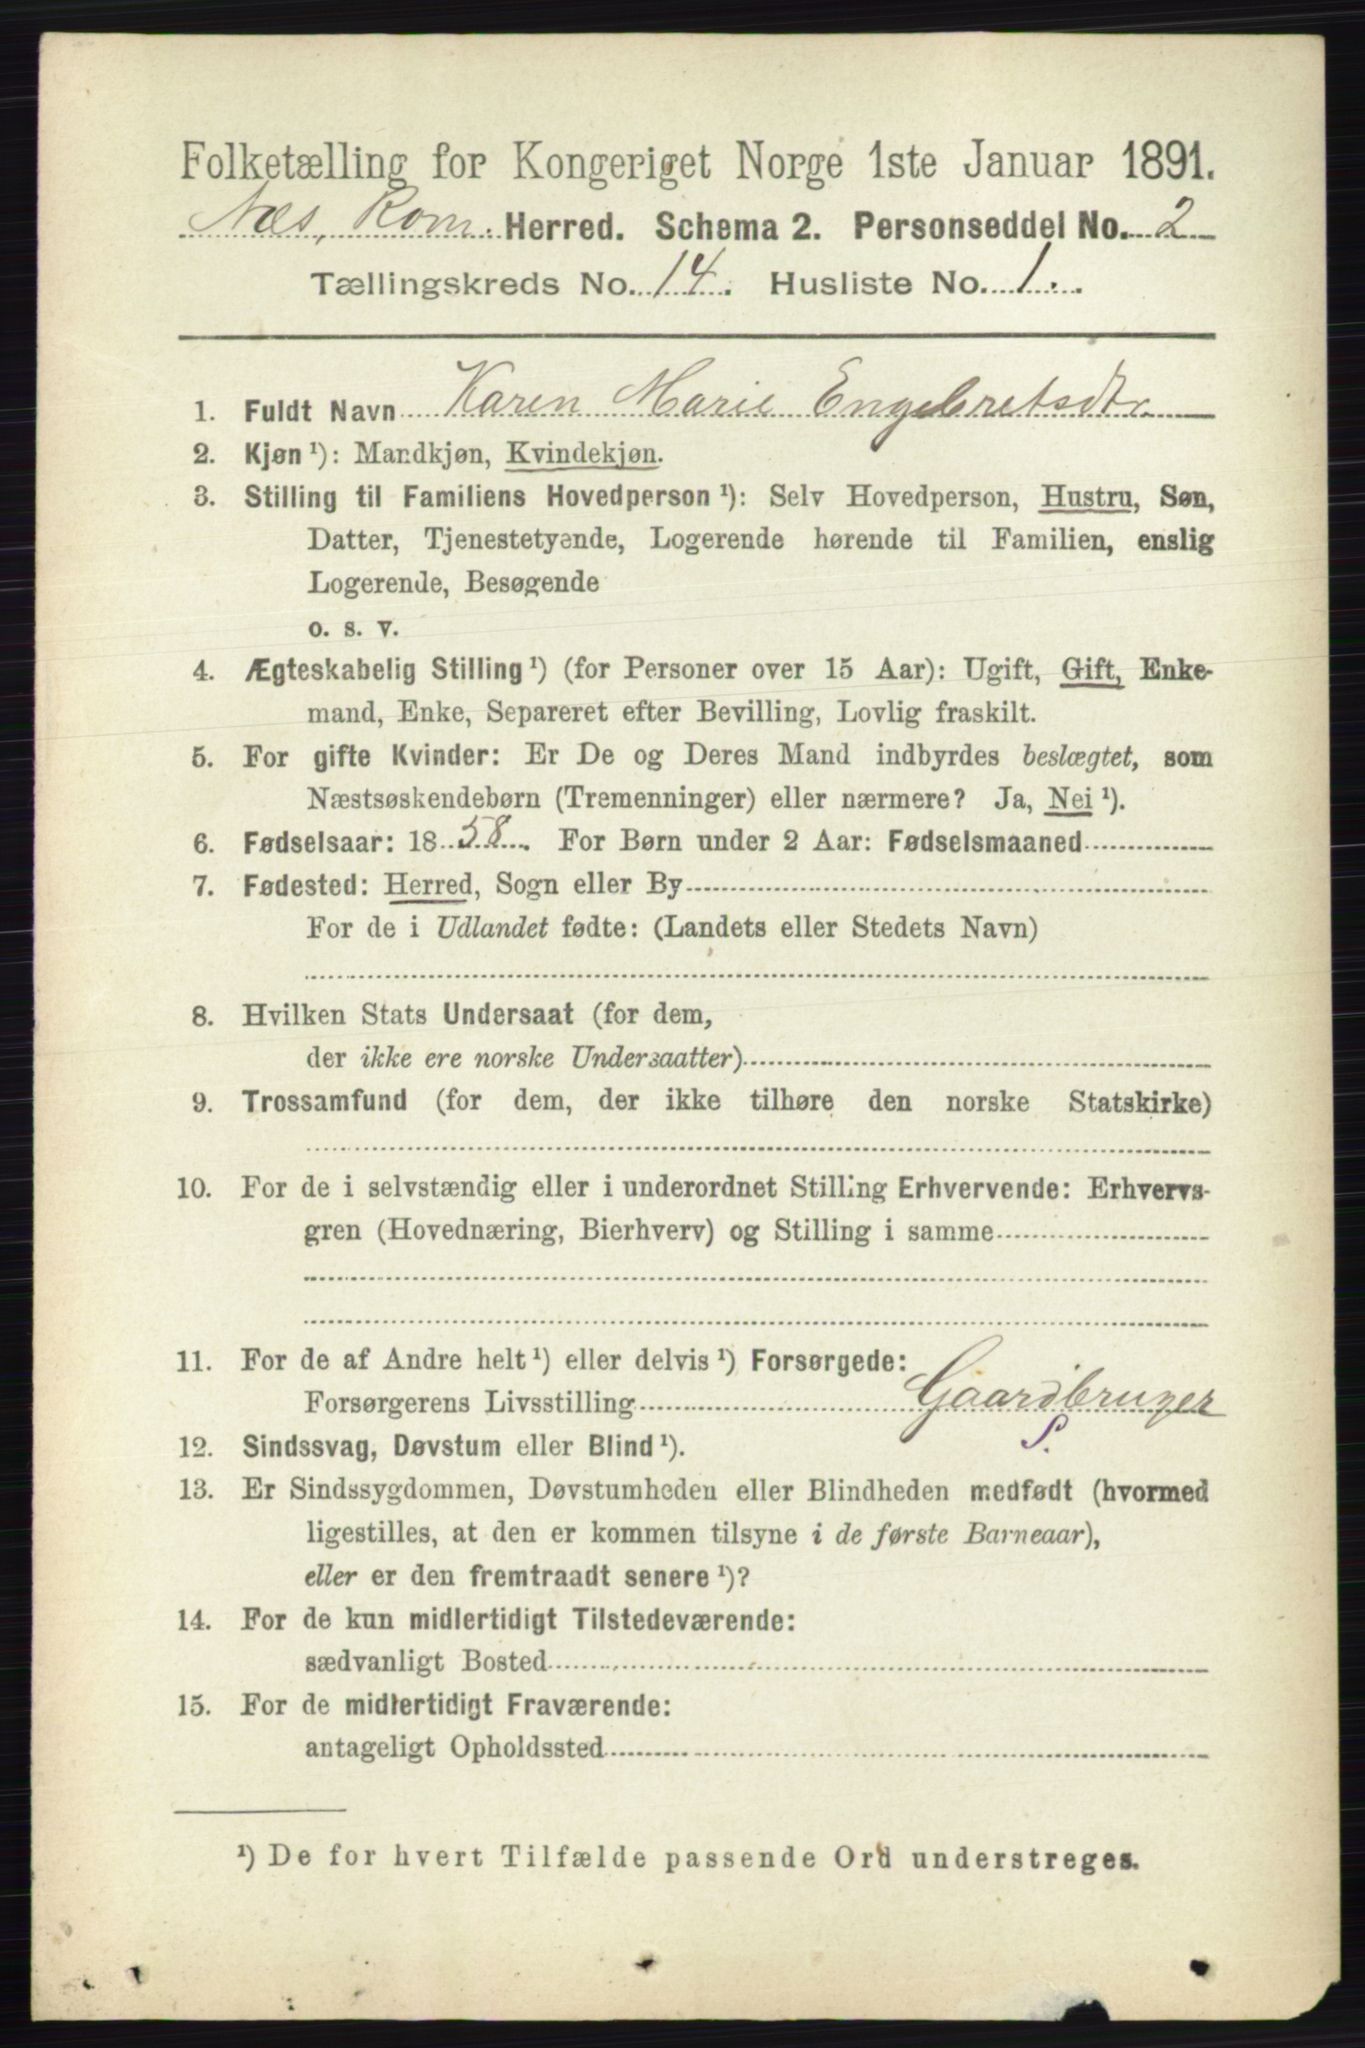 Folketælling for Kongeriget Norge 1ste Januar 1891.
Næs, Rom. Herred. Schema 2. Personseddel No. 2
Tællingskreds No. 14. Husliste No. 1.
1. Fuldt Navn Karen Marie Engebretsdtr.
2. Kjøn ¹): Mandkjøn, Kvindekjøn.
3. Stilling til Familiens Hovedperson ¹): Selv Hovedperson, Hustru, Søn,
Datter, Tjenestetyende, Logerende hørende til Familien, enslig
Logerende, Besøgende
o. s. v.
4. Ægteskabelig Stilling ¹) (for Personer over 15 Aar): Ugift, Gift, Enke-
mand, Enke, Separeret efter Bevilling, Lovlig fraskilt.
5. For gifte Kvinder: Er De og Deres Mand indbyrdes beslægtet, som
Næstsøskendebørn (Tremenninger) eller nærmere? Ja, Nei ¹).
6. Fødselsaar: 1858. For Børn under 2 Aar: Fødselsmaaned
7. Fødested: Herred, Sogn eller By
For de i Udlandet fødte: (Landets eller Stedets Navn)
8. Hvilken Stats Undersaat (for dem,
der ikke ere norske Undersaatter)
9. Trossamfund (for dem, der ikke tilhøre den norske Statskirke)
10. For de i selvstændig eller i underordnet Stilling Erhvervende: Erhvervs-
gren (Hovednæring, Bierhverv) og Stilling i samme
11. For de af Andre helt ¹) eller delvis ¹) Forsørgede:
Forsørgerens Livsstilling Gaardbruger
S.
12. Sindssvag, Døvstum eller Blind ¹).
13. Er Sindssygdommen, Døvstumheden eller Blindheden medfødt (hvormed
ligestilles, at den er kommen tilsyne i de første Barneaar),
eller er den fremtraadt senere ¹)?
14. For de kun midlertidigt Tilstedeværende:
sædvanligt Bosted
15. For de midlertidigt Fraværende:
antageligt Opholdssted
¹) De for hvert Tilfælde passende Ord understreges.